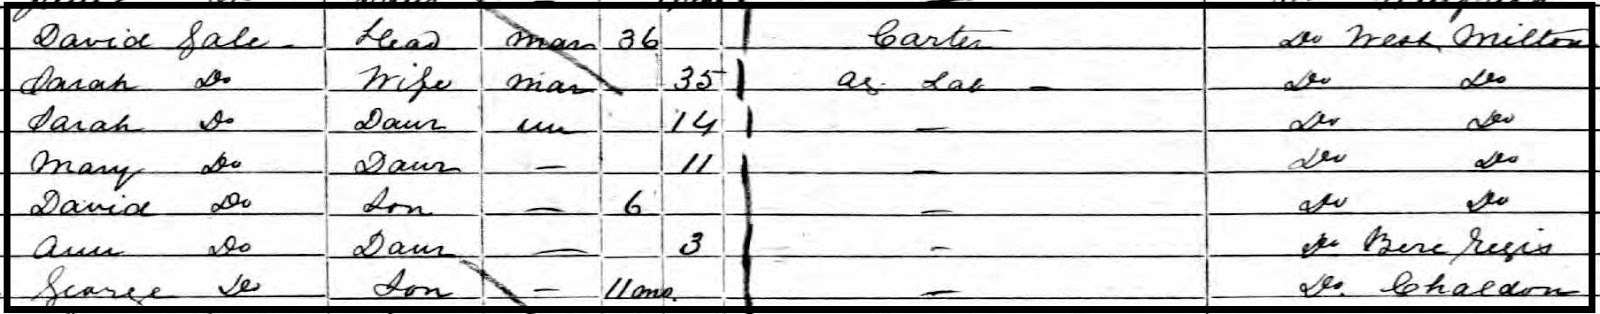 David Gale Head Mar 36 Carter Do West Milton
Sarah Do Wife Mar 35 Ag. Lab — Do Do
Sarah Do Daur un 14 — Do Do
Mary Do Daur — 11 — Do Do
David Do Son — 6 — Do Do
Ann Do Daur — 3 — Do Bere Regis
George Do Son — 11 mo. — Do. Chaldon